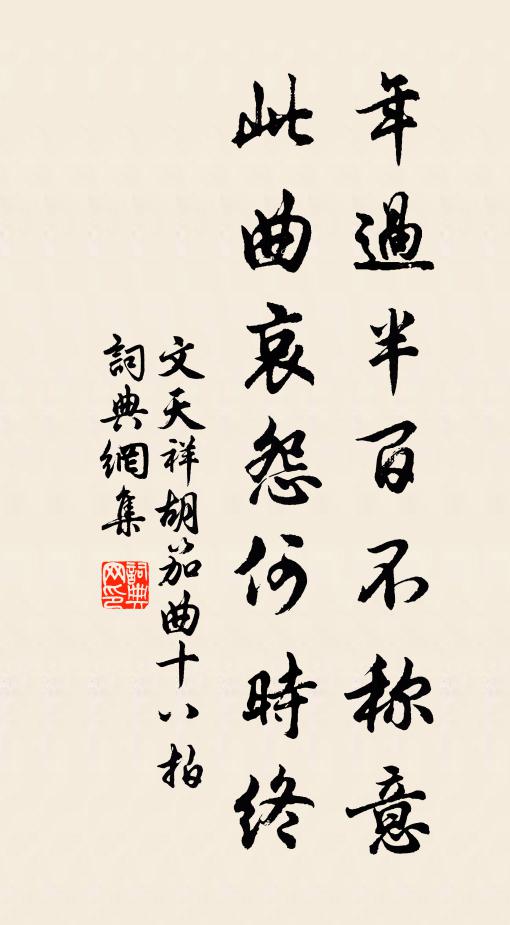 年過半百不称意
此曲哀怨何時終
文天祥胡笳曲十八拍
詞典網集
詞典
网印